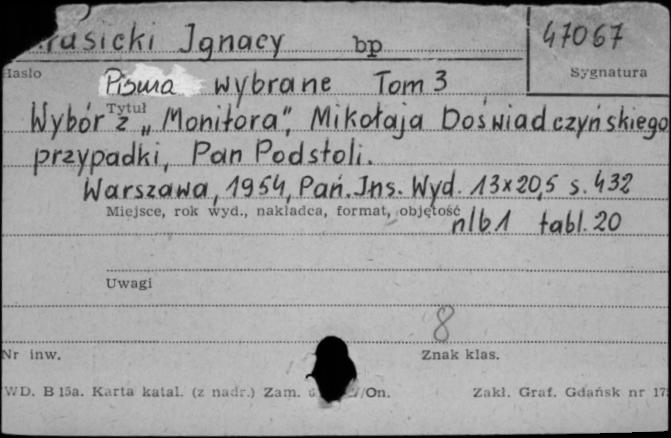 rasicki Ignacy bp 47067
Hasło Sygnatura
Pisma wybrane Tom 3
Tytuł
Wybór z „Monitora", Mikołaja Doświadczyńskiego
przypadki, Pan Podstoli.
Warszawa, 1954, Pań. Ins. Wyd. 13x20,5 s. 432
Miejsce, rok wyd., nakładca, format, objętość
nlb 1 tabl. 20
Uwagi
8
Nr inw. Znak klas.
WD. B 15a. Karta katal. (z nadr.) Zam. /On. Zakł. Graf. Gdańsk nr 17